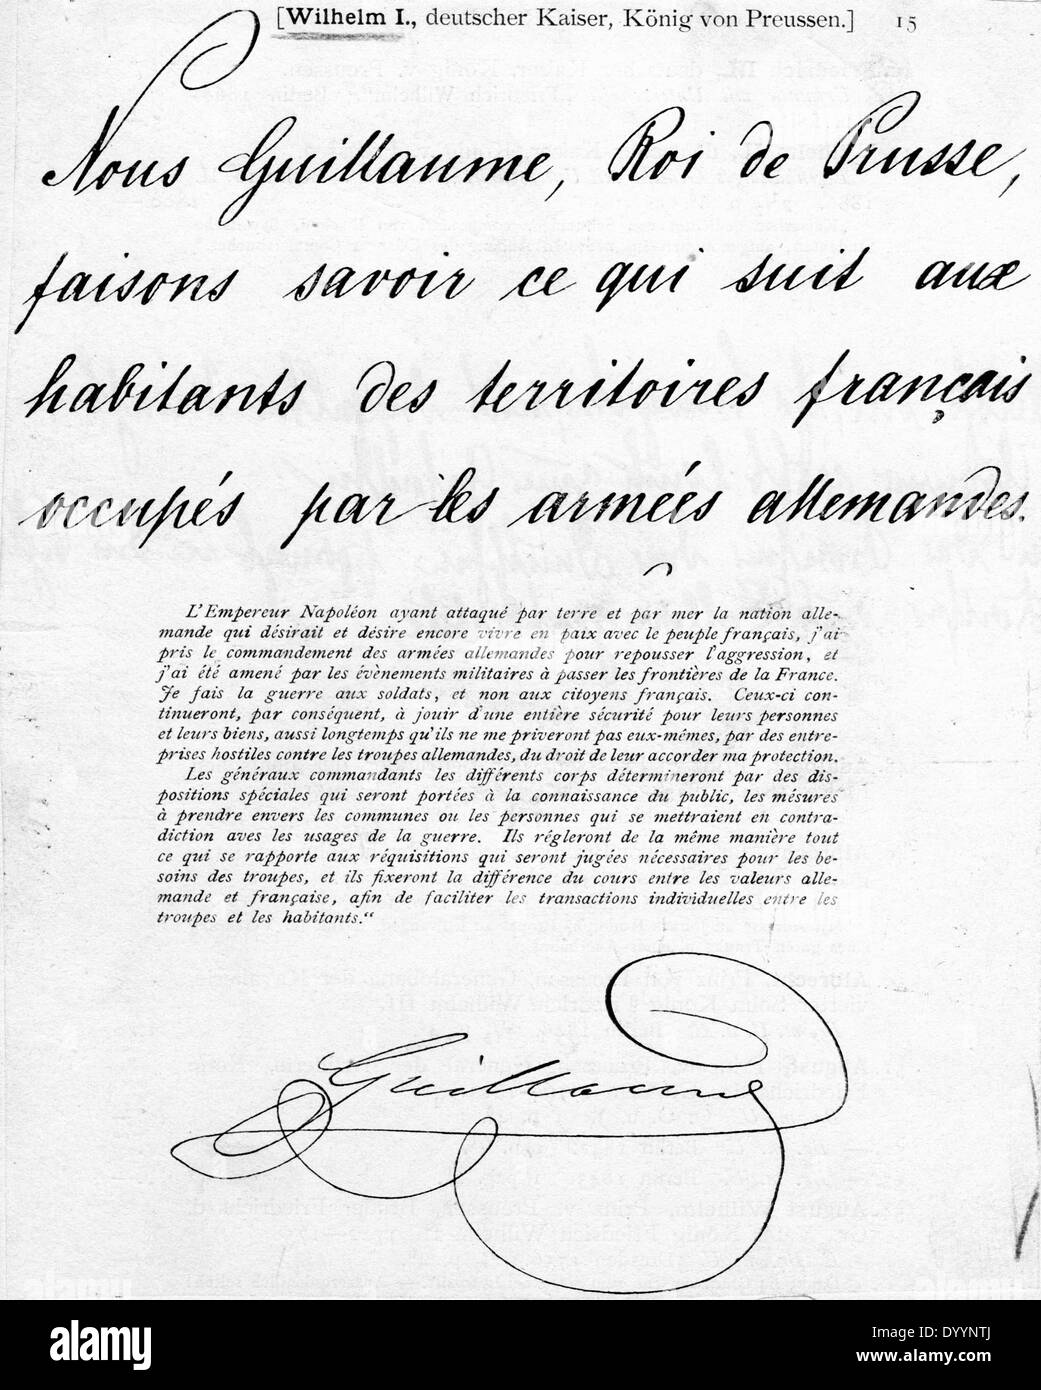 [Wilhelm I., deutscher Kaiser, König von Preussen.] 15
Nous Guillaume, Roi de Prusse,
faisons savoir ce qui suit aux
habitants des territoires français
occupés par les armées allemandes.
L'Empereur Napoléon ayant attaqué par terre et par mer la nation alle-
mande qui désirait et désire encore vivre en paix avec le peuple français, j'ai
pris le commandement des armées allemandes pour repousser l'aggression, et
j'ai été amené par les évènements militaires à passer les frontières de la France.
Je fais la guerre aux soldats, et non aux citoyens français. Ceux-ci con-
tinueront, par conséquent, à jouir d'une entière sécurité pour leurs personnes
et leurs biens, aussi longtemps qu'ils ne me priveront pas eux-mêmes, par des entre-
prises hostiles contre les troupes allemandes, du droit de leur accorder ma protection.
Les généraux commandants les différents corps détermineront par des dis-
positions spéciales qui seront portées à la connaissance du public, les mésures
à prendre envers les communes ou les personnes qui se mettraient en contra-
diction aves les usages de la guerre. Ils régleront de la même manière tout
ce qui se rapporte aux réquisitions qui seront jugées nécessaires pour les be-
soins des troupes, et ils fixeront la différence du cours entre les valeurs alle-
mande et française, afin de faciliter les transactions individuelles entre les
troupes et les habitants.“
Guillaume
alamy
Image ID: DYYNTJ
www.alamy.com